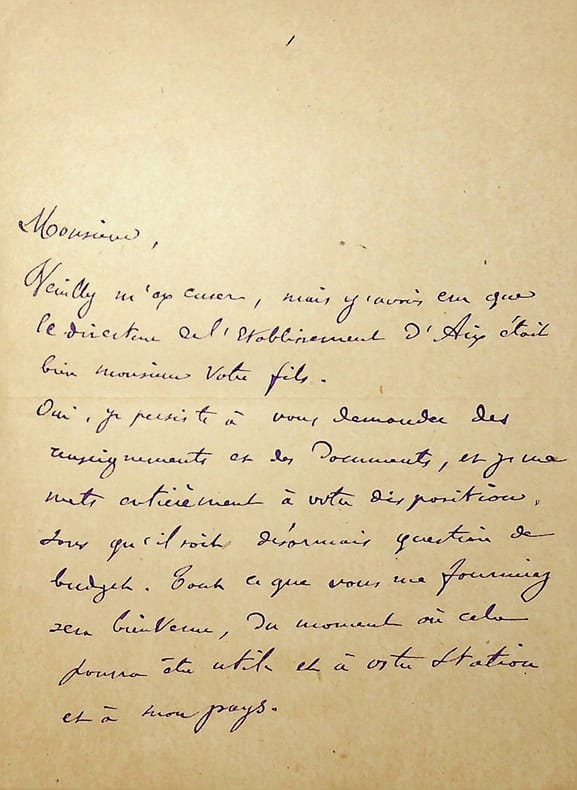 Monsieur,
Veuillez m'excuser, mais j'avais cru que
le directeur de l'Etablissement d'Aix était
bien monsieur votre fils.
Oui, je persiste à vous demander des
renseignements et des Documents, et je me
mets entièrement à votre disposition,
sans qu'il soit désormais question de
budget. Tout ce que vous me fournirez
sera bienvenu, du moment où cela
pourra être utile et à votre Station
et à mon pays.